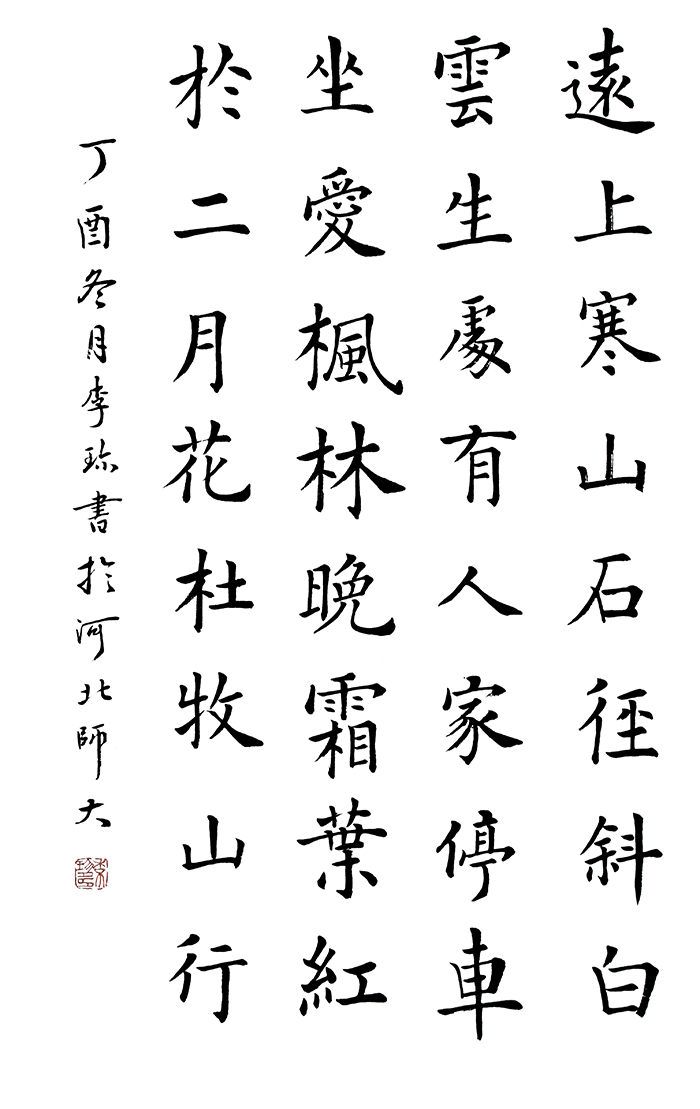 遠上寒山石徑斜白
雲生處有人家停車
坐愛楓林晚霜葉紅
於二月花杜牧山行
丁酉冬月李珍書於河北師大